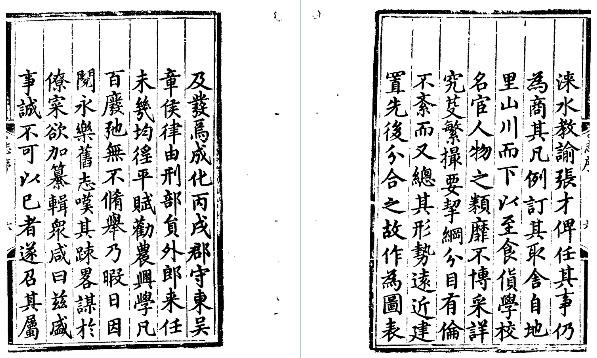 及發焉成化丙戌郡守東吳
章侯律由刑部員外郎来任
未幾均徭平賦勸農興學凡
百廢弛無不脩舉乃暇日因
閱永樂舊志嘆其踈畧謀於
僚寀欲加纂輯衆咸曰兹盛
事誠不可以已者遂召其屬
涞水教諭張才俾任其事仍
為商其凡例訂其取舍自地
里山川而下以至食貨學校
名官人物之類靡不博采詳
究芟繁撮要挈綱分目有倫
不紊而又總其形勢遠近建
置先後分合之故作為圖表